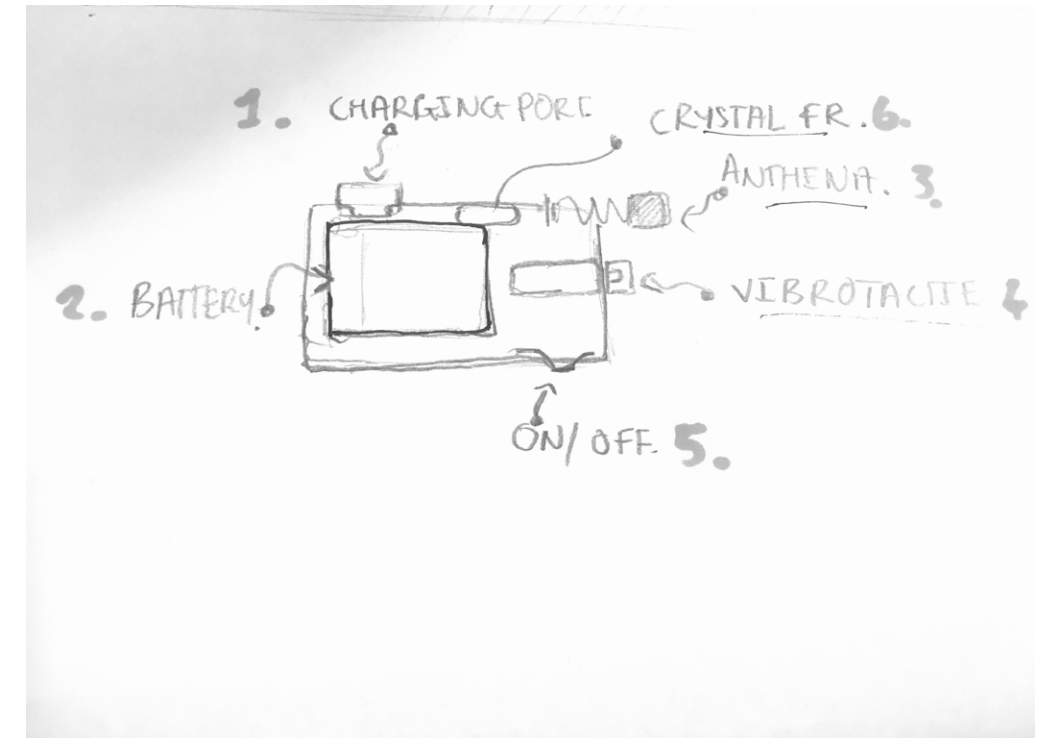 1. CHARGING PORT
CRYSTAL FR. 6.
ANTHENA. 3.
2. BATTERY.
VIBROTACTTE 4
ON/OFF. 5.